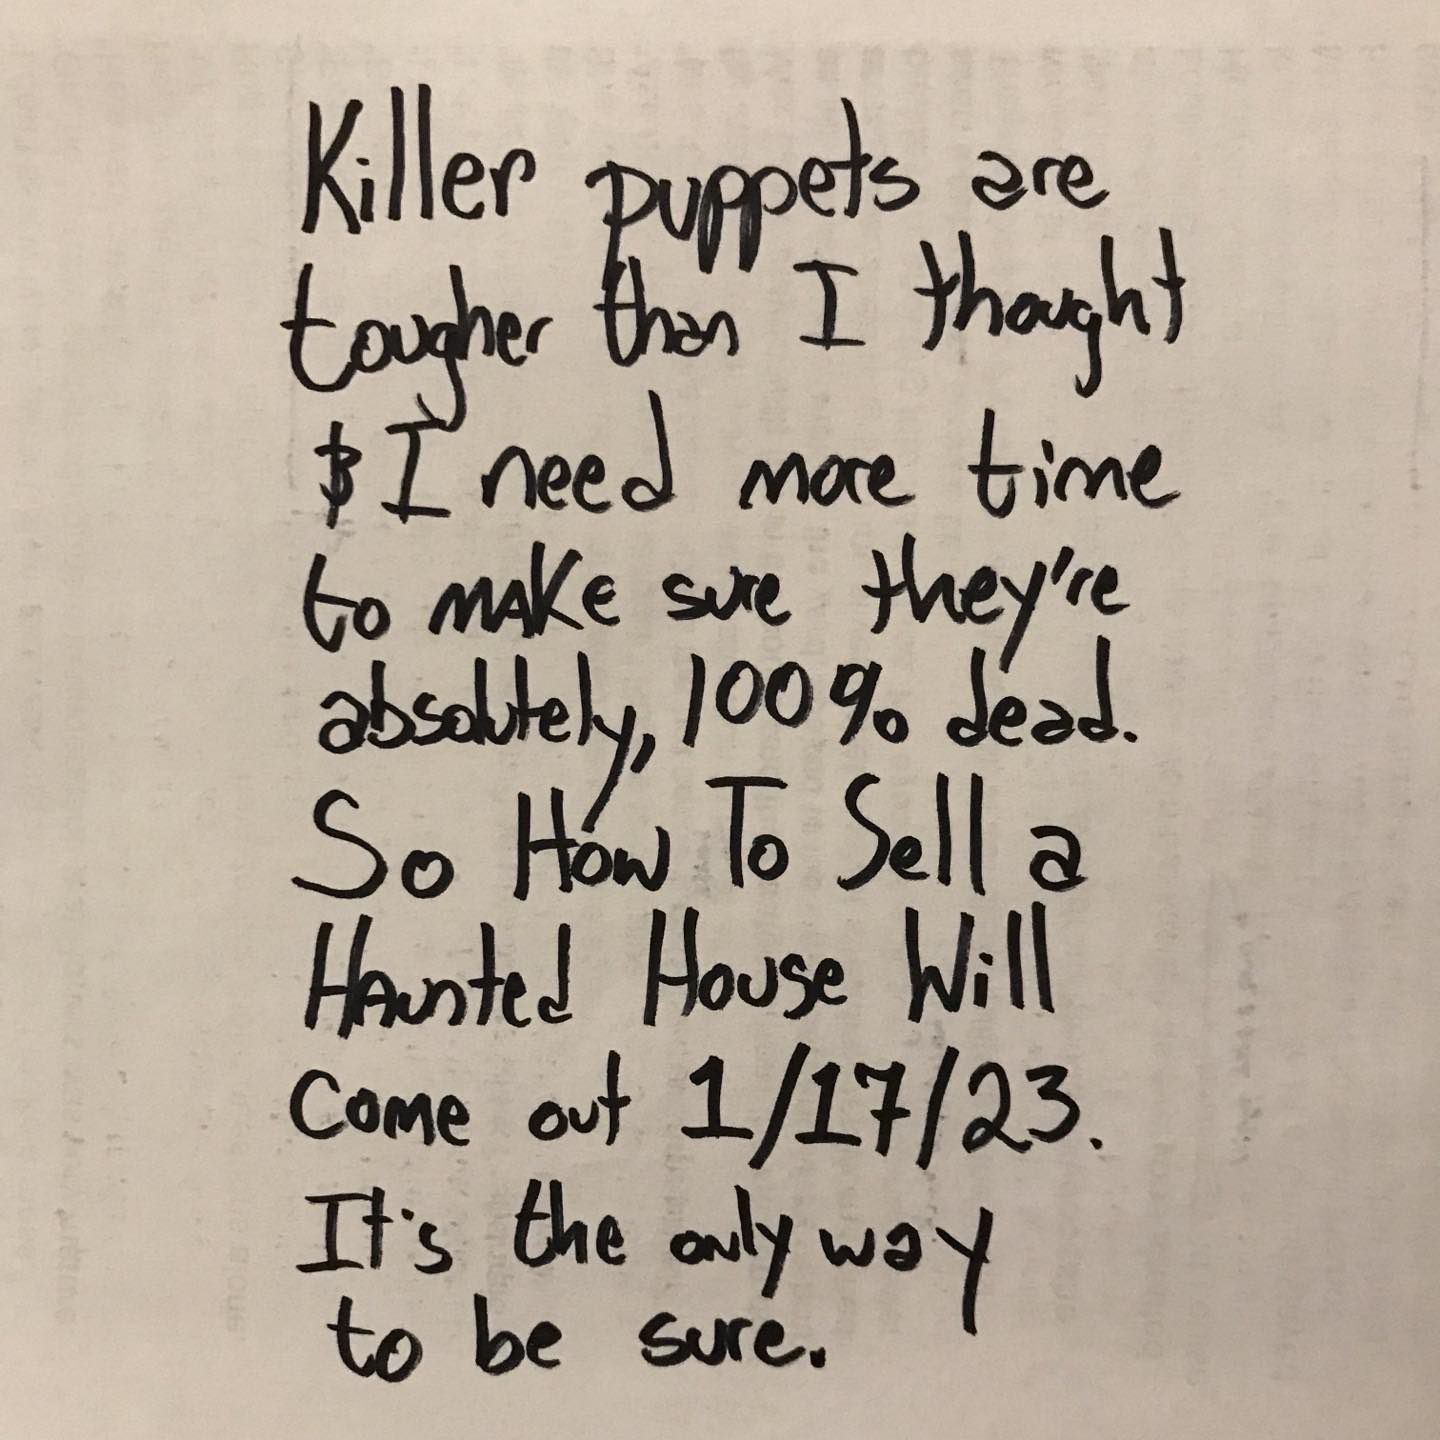 Killer puppets are
tougher than I thought
& I need more time
to make sure they're
absolutely, 100% dead.
So How To Sell a
Haunted House Will
Come out 1/17/23.
It's the only way
to be sure.